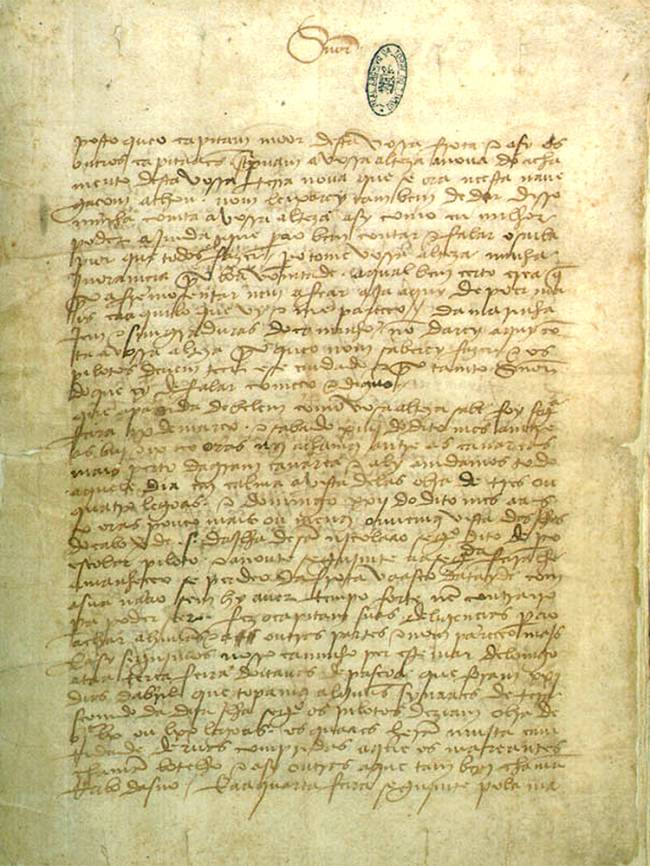 Snõr
posto que o capitam moor desta vossa frota e asy os
outros capitaães screpuam a vossa alteza a noua do acha
mento desta vossa terra noua que se ora neesta naue
gaçom achou. nom leixarey tambem de dar disso
minha comta a vossa alteza asy como eu milhor
poder ajmda que pera o bem contar e falar o saiba
pior que todos fazer. / pero tome vossa alteza minha
jnoramçia por boa vomtade. a qual bem çerto crea q̃
por afremosentar nem afear aja aquy de poer ma
is ca aquilo que vy e me pareçeo. / da marinha
jem e simgraduras do caminho nõ darey aquy cõ
ta a vossa alteza por que o nom saberey fazer e os
pilotos deuem teer ese cuidado e por tanto Snõr
do que ey de falar começo e diguo.
que a partida de belem como vosa alteza sabe foy segª
feira ix de março. e sabado xiiij do dito mes amtre
as biij e ix oras nos achamos amtre as canareas
mais perto da gram canarea e aly amdamos todo
aquele dia em calma a vista delas obra de tres ou
quatro legoas. e domingo xxij do dito mes aas
x oras pouco mais ou menos ouuemos vista das jlhas
do cabo verde. s. da jlha de sã njcolaao segº dito de pº
escolar piloto. e a noute segujmte aa segª feira lhe
amanheçeo se perdeo da frota vaasco datayde com
a sua naao sem hy auer tempo forte nẽ contrairo
pera poder seer. fez o capitam suas deligençias pera o
achar a huũas e a outras partes e nom pareçeo majs
E asy segujmos nosso caminho per este mar de lomgo
ataa terça feira doitauas de pascoa que foram xxj
dias dabril que topamos alguũs synaaes de tera
seemdo da dita jlha segº os pilotos deziam obra de
bjc lx ou lxx legoas. os quaaes herã mujta cam
tidade deruas compridas a que os mareantes
chamã botelho e asy outras a que tam bem chamã
rrabo dasno. / E aa quarta feira segujmte pola ma